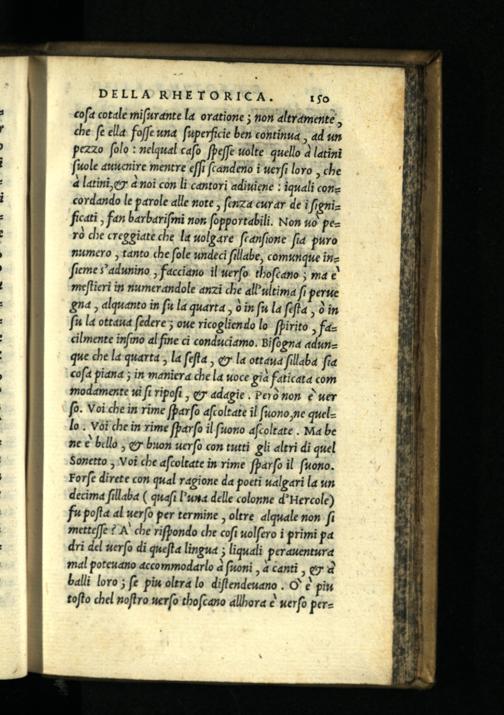 DELLA RHETORICA. 150
cosa cotale misurante la oratione; non altramente,
che se ella fosse una superficie ben continua, ad un
pezzo solo: nelqual caso spesse uolte quello à latini
suole auuenire mentre essi scandeno i uersi loro, che
à latini, & à noi con li cantori adiuiene: iquali con=
cordando le parole alle note, senza curar de i signi=
ficati, fan barbarismi non sopportabili. Non uò pe=
rò che creggiate che la uolgare scansione sia puro
numero, tanto che sole undeci sillabe, comunque in=
sieme s'adunino, facciano il uerso thoscano; ma è
mestieri in numerandole anzi che all'ultima si perue
gna, alquanto in su la quarta, ò in su la sesta, ò in
su la ottaua sedere; oue ricogliendo lo spirito, fa=
cilmente insino al fine ci conduciamo. Bisogna adun=
que che la quarta, la sesta, & la ottaua sillaba sia
cosa piana; in maniera che la uoce già faticata com
modamente ui si riposi, & adagie. Però non è uer
so. Voi che in rime sparso ascoltate il suono, ne quel=
lo. Voi che in rime sparso il suono ascoltate. Ma be
ne è bello, & buon uerso con tutti gli altri di quel
Sonetto, Voi che ascoltate in rime sparso il suono.
Forse direte con qual ragione da poeti uulgari la un
decima sillaba (quasi l'una delle colonne d'Hercole)
fu posta al uerso per termine, oltre alquale non si
mettesse? A' che rispondo che cosi uolsero i primi pa
dri del uerso di questa lingua; liquali perauentura
mal poteuano accommodarlo à suoni, à canti, & à
balli loro; se piu oltra lo distendeuano. O' è piu
tosto chel nostro uerso thoscano allhora è uerso per=